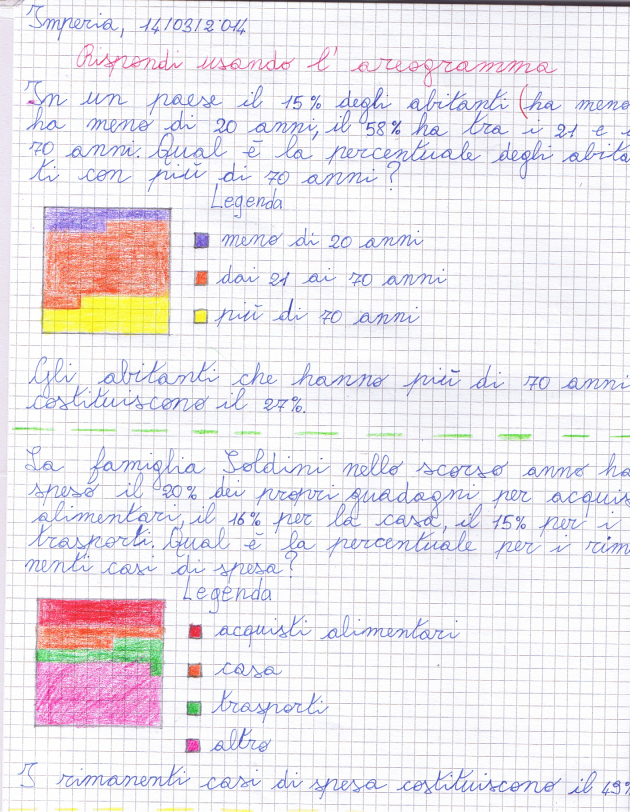 Imperia, 14/03/2014
Rispondi usando l'areogramma
In un paese il 15% degli abitanti (ha meno
ha meno di 20 anni, il 58% ha tra i 21 e i
70 anni. Qual è la percentuale degli abita
ti con più di 70 anni?
Legenda
meno di 20 anni
dai 21 ai 70 anni
più di 70 anni
Gli abitanti che hanno più di 70 anni
costituiscono il 27%.
La famiglia Soldini nello scorso anno ha
speso il 20% dei propri guadagni per acquis
alimentari, il 16% per la casa, il 15% per i
trasporti. Qual è la percentuale per i rim
nenti casi di spesa?
Legenda
acquisti alimentari
casa
trasporti
altro
I rimanenti casi di spesa costituiscono il 49%